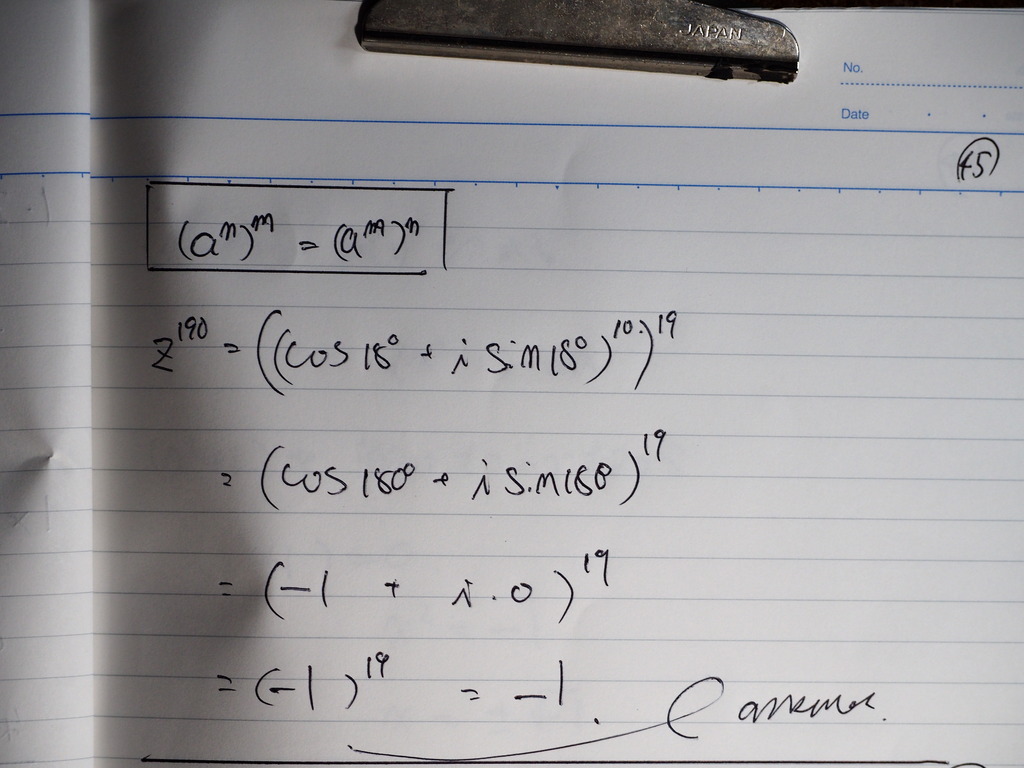 JAPAN
No.
Date
45
(aⁿ)ᵐ = (aᵐ)ⁿ
z¹⁹⁰ = ((cos 18° + i sin 18°)¹⁰)¹⁹
= (cos 180° + i sin 180°)¹⁹
= (-1 + i・0)¹⁹
= (-1)¹⁹ = -1.
answer.